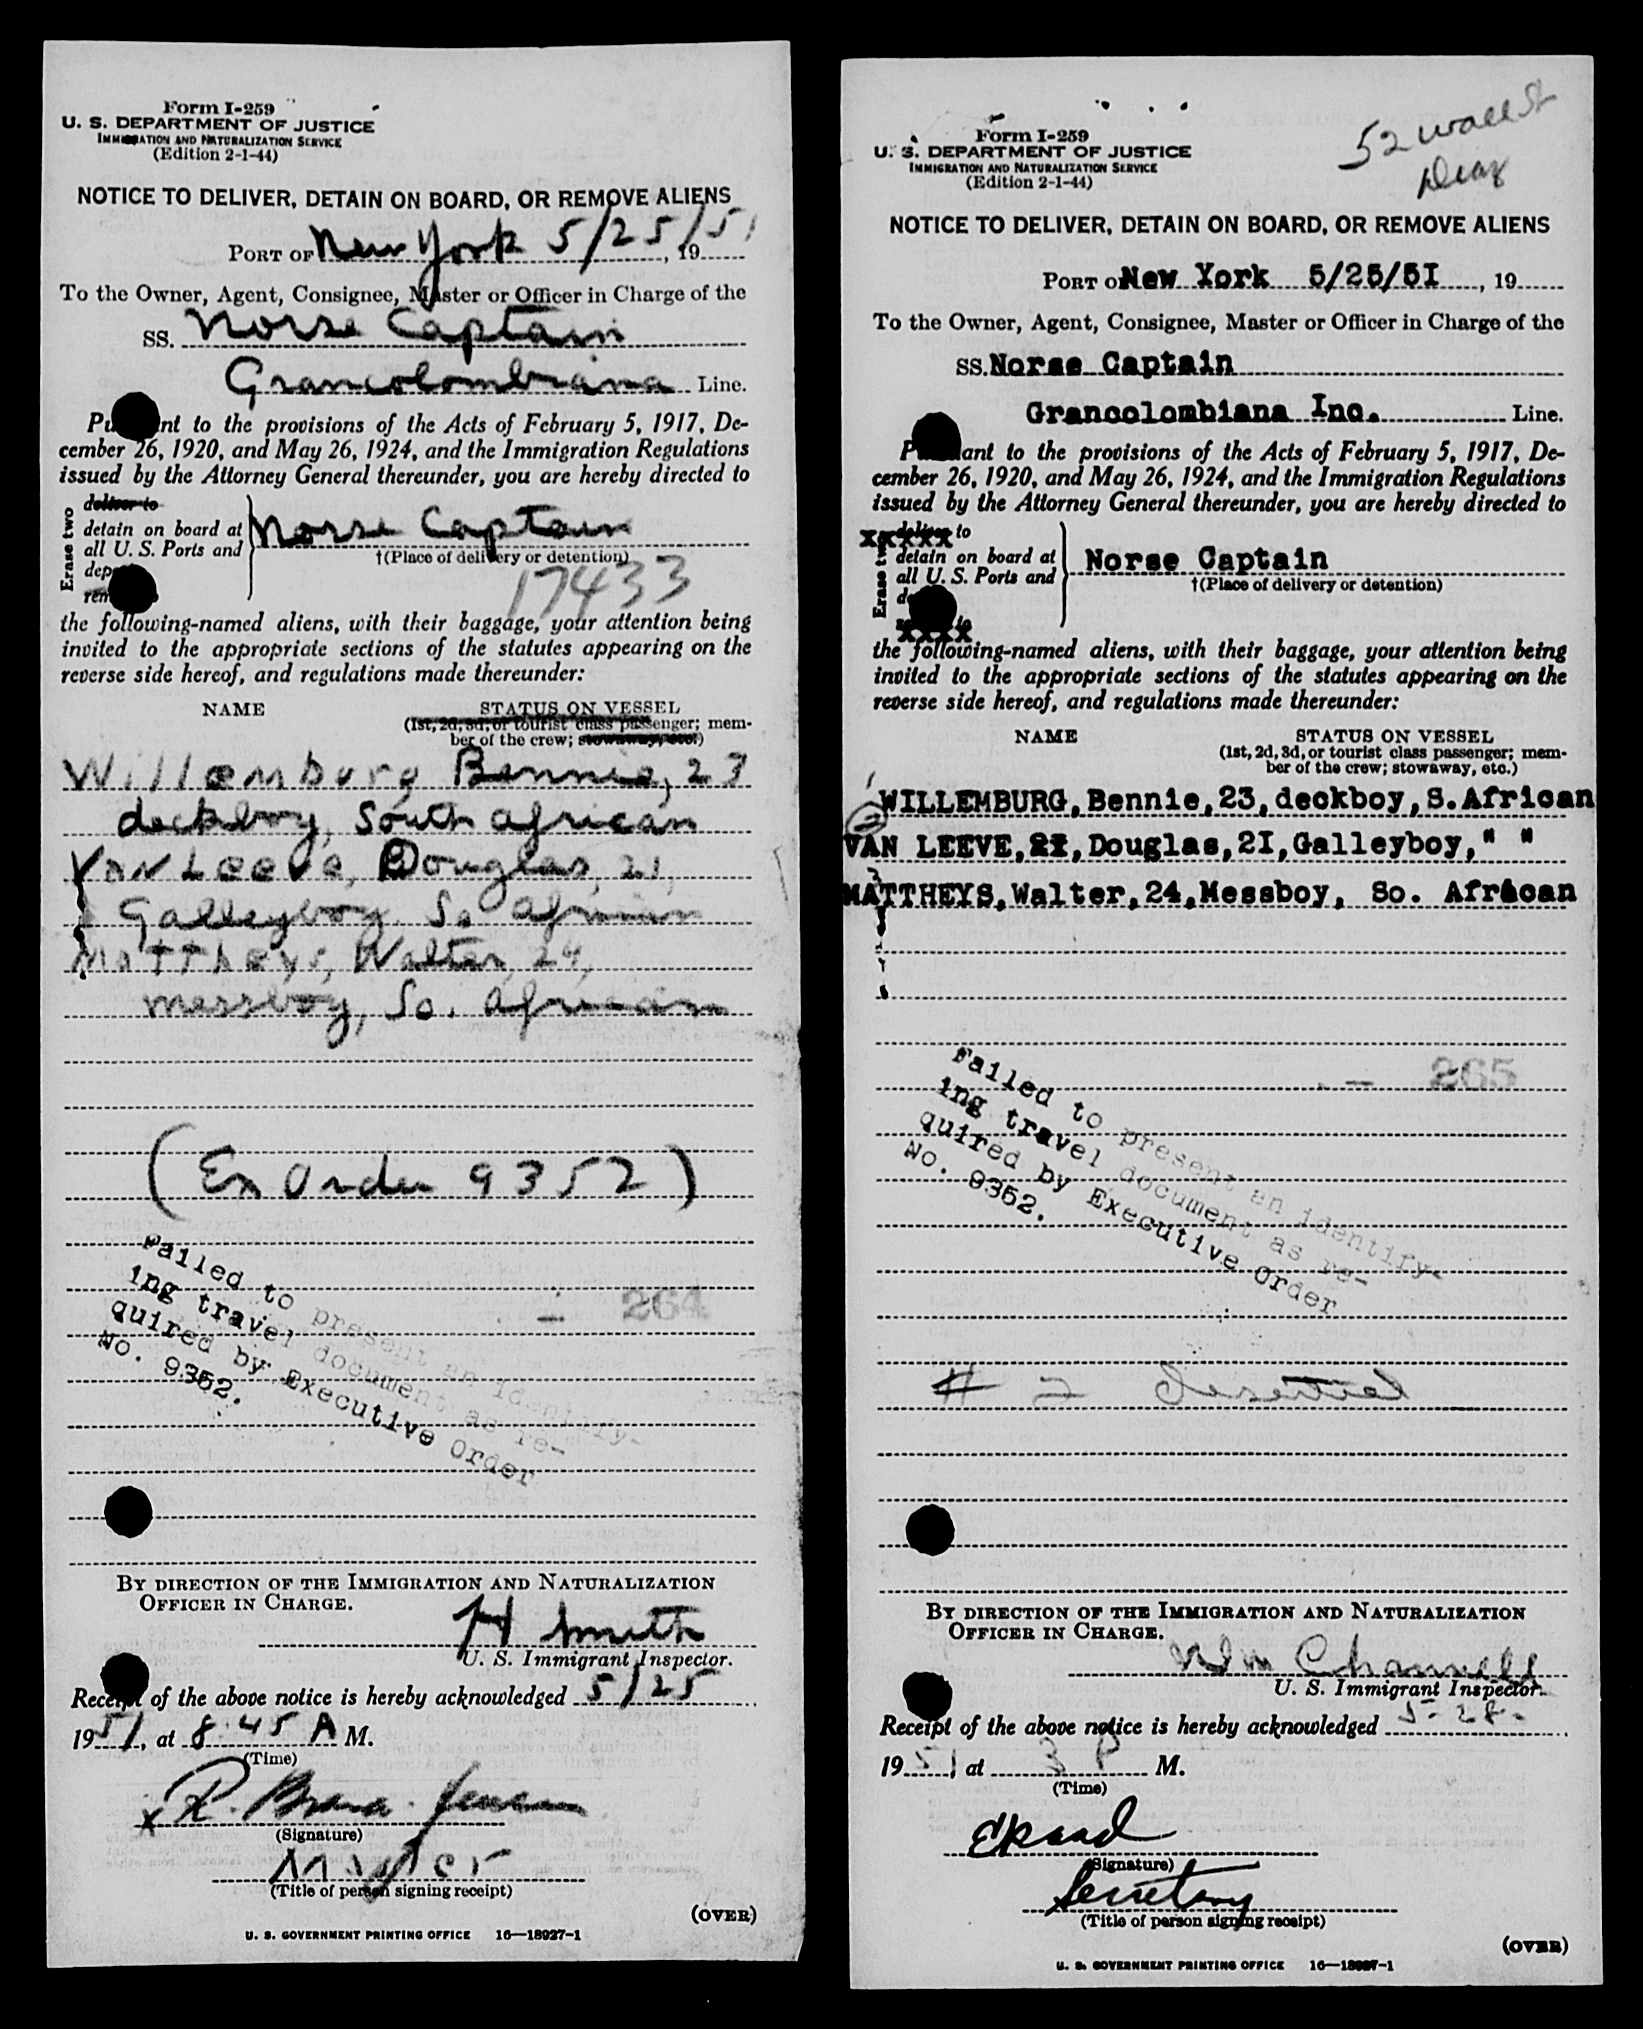 Form I-259
U. S. DEPARTMENT OF JUSTICE
IMMIGRATION AND NATURALIZATION SERVICE
(Edition 2-1-44)
NOTICE TO DELIVER, DETAIN ON BOARD, OR REMOVE ALIENS
PORT OF New York 5/25/51, 19
To the Owner, Agent, Consignee, Master or Officer in Charge of the
SS. Norse Captain
Grancolombiana Line.
Pu nt to the provisions of the Acts of February 5, 1917, De-
cember 26, 1920, and May 26, 1924, and the Immigration Regulations
issued by the Attorney General thereunder, you are hereby directed to
Erase two
deliver to
detain on board at
all U. S. Ports and
dep
rem
Norse Captain
†(Place of delivery or detention)
17433
the following-named aliens, with their baggage, your attention being
invited to the appropriate sections of the statutes appearing on the
reverse side hereof, and regulations made thereunder:
NAME STATUS ON VESSEL
(1st, 2d, 3d, or tourist class passenger; mem-
ber of the crew; stowaway, etc.)
Willemburg Bennie, 23
deckboy, South African
Van Leeve, Douglas, 21,
Galleyboy So African
Mattheys, Walter, 24,
messboy, So. African
(Ex Order 9352)
Failed to present an identify-
ing travel document as re-
quired by Executive Order
No. 9352.
- 264
BY DIRECTION OF THE IMMIGRATION AND NATURALIZATION
OFFICER IN CHARGE.
H Smith
U. S. Immigrant Inspector.
Receipt of the above notice is hereby acknowledged 5/25
1951, at 8:45 A M.
(Time)
x R.
(Signature)
Master
(Title of person signing receipt)
(OVER)
U. S. GOVERNMENT PRINTING OFFICE 16—18927-1
52 Wall St
Form I-259
U. S. DEPARTMENT OF JUSTICE
IMMIGRATION AND NATURALIZATION SERVICE
(Edition 2-1-44)
NOTICE TO DELIVER, DETAIN ON BOARD, OR REMOVE ALIENS
PORT O New York 5/25/5I, 19
To the Owner, Agent, Consignee, Master or Officer in Charge of the
SS. Norse Captain
Grancolombiana Inc. Line.
P ant to the provisions of the Acts of February 5, 1917, De-
cember 26, 1920, and May 26, 1924, and the Immigration Regulations
issued by the Attorney General thereunder, you are hereby directed to
Erase two
deliver to
detain on board at
all U. S. Ports and
de
to
Norse Captain
†(Place of delivery or detention)
the following-named aliens, with their baggage, your attention being
invited to the appropriate sections of the statutes appearing on the
reverse side hereof, and regulations made thereunder:
NAME STATUS ON VESSEL
(1st, 2d, 3d, or tourist class passenger; mem-
ber of the crew; stowaway, etc.)
1 WILLEMBURG, Bennie, 23, deckboy, S. African
2 VAN LEEVE, 2I, Douglas, 2I, Galleyboy, " "
3 MATTHEYS, Walter, 24, Messboy, So. African
- 265
Failed to present an identify-
ing travel document as re-
quired by Executive Order
No. 9352.
# 2 Deserted
BY DIRECTION OF THE IMMIGRATION AND NATURALIZATION
OFFICER IN CHARGE.
Wm Channell
U. S. Immigrant Inspector.
Receipt of the above notice is hereby acknowledged 5-28-
1951 at 3 P M.
(Time)
(Signature)
Secretary
(Title of person signing receipt)
(OVER)
U. S. GOVERNMENT PRINTING OFFICE 16—18927-1